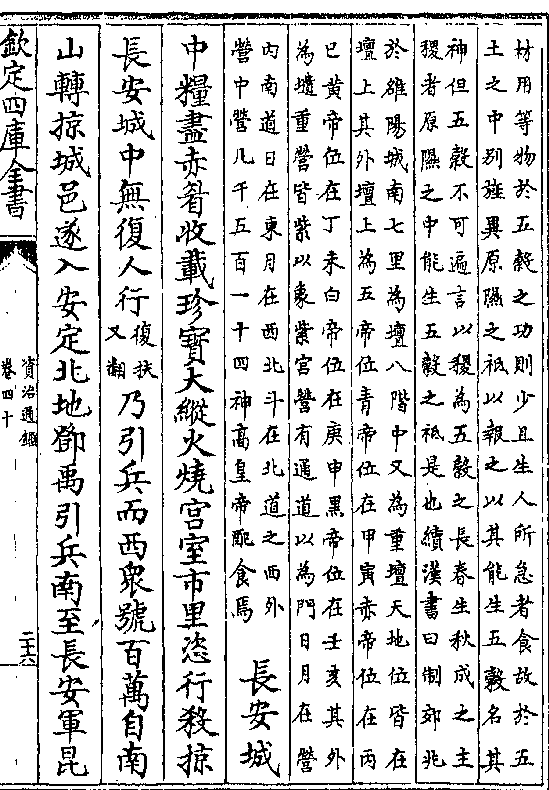 材用等物於五穀之功則少且生人所急者食故於五
土之中别旌異原隰之祇以報之以其能生五穀名其
神但五穀不可遍言以稷為五穀之長春生秋成之主
稷者原隰之中能生五穀之祇是也續漢書曰制郊兆
於雒陽城南七里為壇八階中又為重壇天地位皆在
壇上其外壇上為五帝位青帝位在甲寅赤帝位在丙
巳黄帝位在丁未白帝位在庚申黑帝位在壬亥其外
為壝重營皆紫以象紫宮營有通道以為門日月在營
内南道日在東月在西北斗在北道之西外
營中營凡千五百一十四神高皇帝配食焉
長安城
中糧盡赤眉收載珍寶大縱火燒宮室市里恣行殺掠
長安城中無復人行復扶又翻乃引兵而西衆號百萬自南
山轉掠城邑遂入安定北地鄧禹引兵南至長安軍昆
欽定四庫全書
資治通鑑
卷四十
二十六